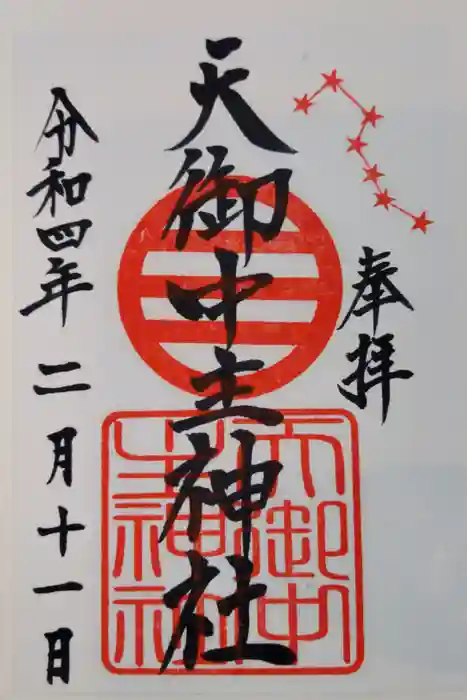 奉拝
天御中主神社
令和四年二月十一日
天御中
主神社